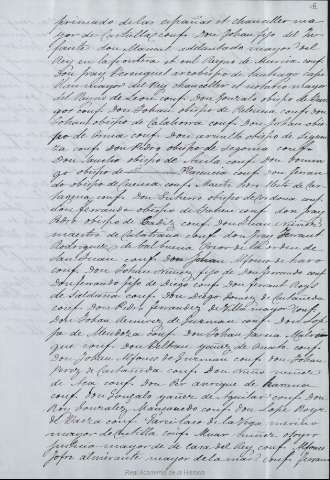 primado de las españas et chanceller ma
yor de Castiella conf. don Johan fijo del inf
fante don Manuel adelantado mayor del
Rey en la frontera et en el Reyno de Murcia conf.
Don fray Berenguel arzobispo de Santiago cape
llan mayor del Rey chanceller et notario mayor
del Reyno de Leon conf. don Gonzalo obispo de Bur
gos conf. Don Johan obispo de Palencia conf. Don
Johan obispo de Calahorra conf. Don Johan obis
po de Osma conf. don Arnalt obispo de Siguen
za conf. don Pedro obispo de Segovia conf.
Don Sancho obispo de Avila conf. don domin
go obispo de Plasencia conf. don fernan
do obispo de Cuenca conf. Maestre
conf. don Gutierre obispo de Cordova conf.
don fernando obispo de Jahen conf. don fray
Pedro obispo de Cadiz conf. don Juan nuñez
maestre de Calatrava conf. don fray fernant
Rodriguez de balbuena Prior de la orden de
San Juan conf. don Johan Alfonso de haro
conf. don Johan Nuñez fijo de don fernando conf.
don fernando fijo de Diego conf. don fernant Royz
de Saldaña conf. don Diego Gomez de Castañeda
conf. don Pedro fernandez de Villa mayor conf.
don Johan Ramirez de Guzman conf. don Lope
de Mendoza conf. don Johan Garcia Manri
que conf. don Beltran yañez de Onate conf.
don Johan Alfonso de Guzman conf. don Johan
Perez de Castañeda conf. don nuño nuñez
de Aza conf. don Per Anrique de harana
conf. don Gonzalo yañez de Aguilar conf. don
Roy Gonzalez Manzanedo conf. don Lope Royz
de Baeza conf. Garcilaso de la Vega merino
mayor de Castilla conf.
Justicia mayor de la casa del Rey conf. Alfonso
Jofre almirante mayor de la mar conf.
Real Academia de la Historia